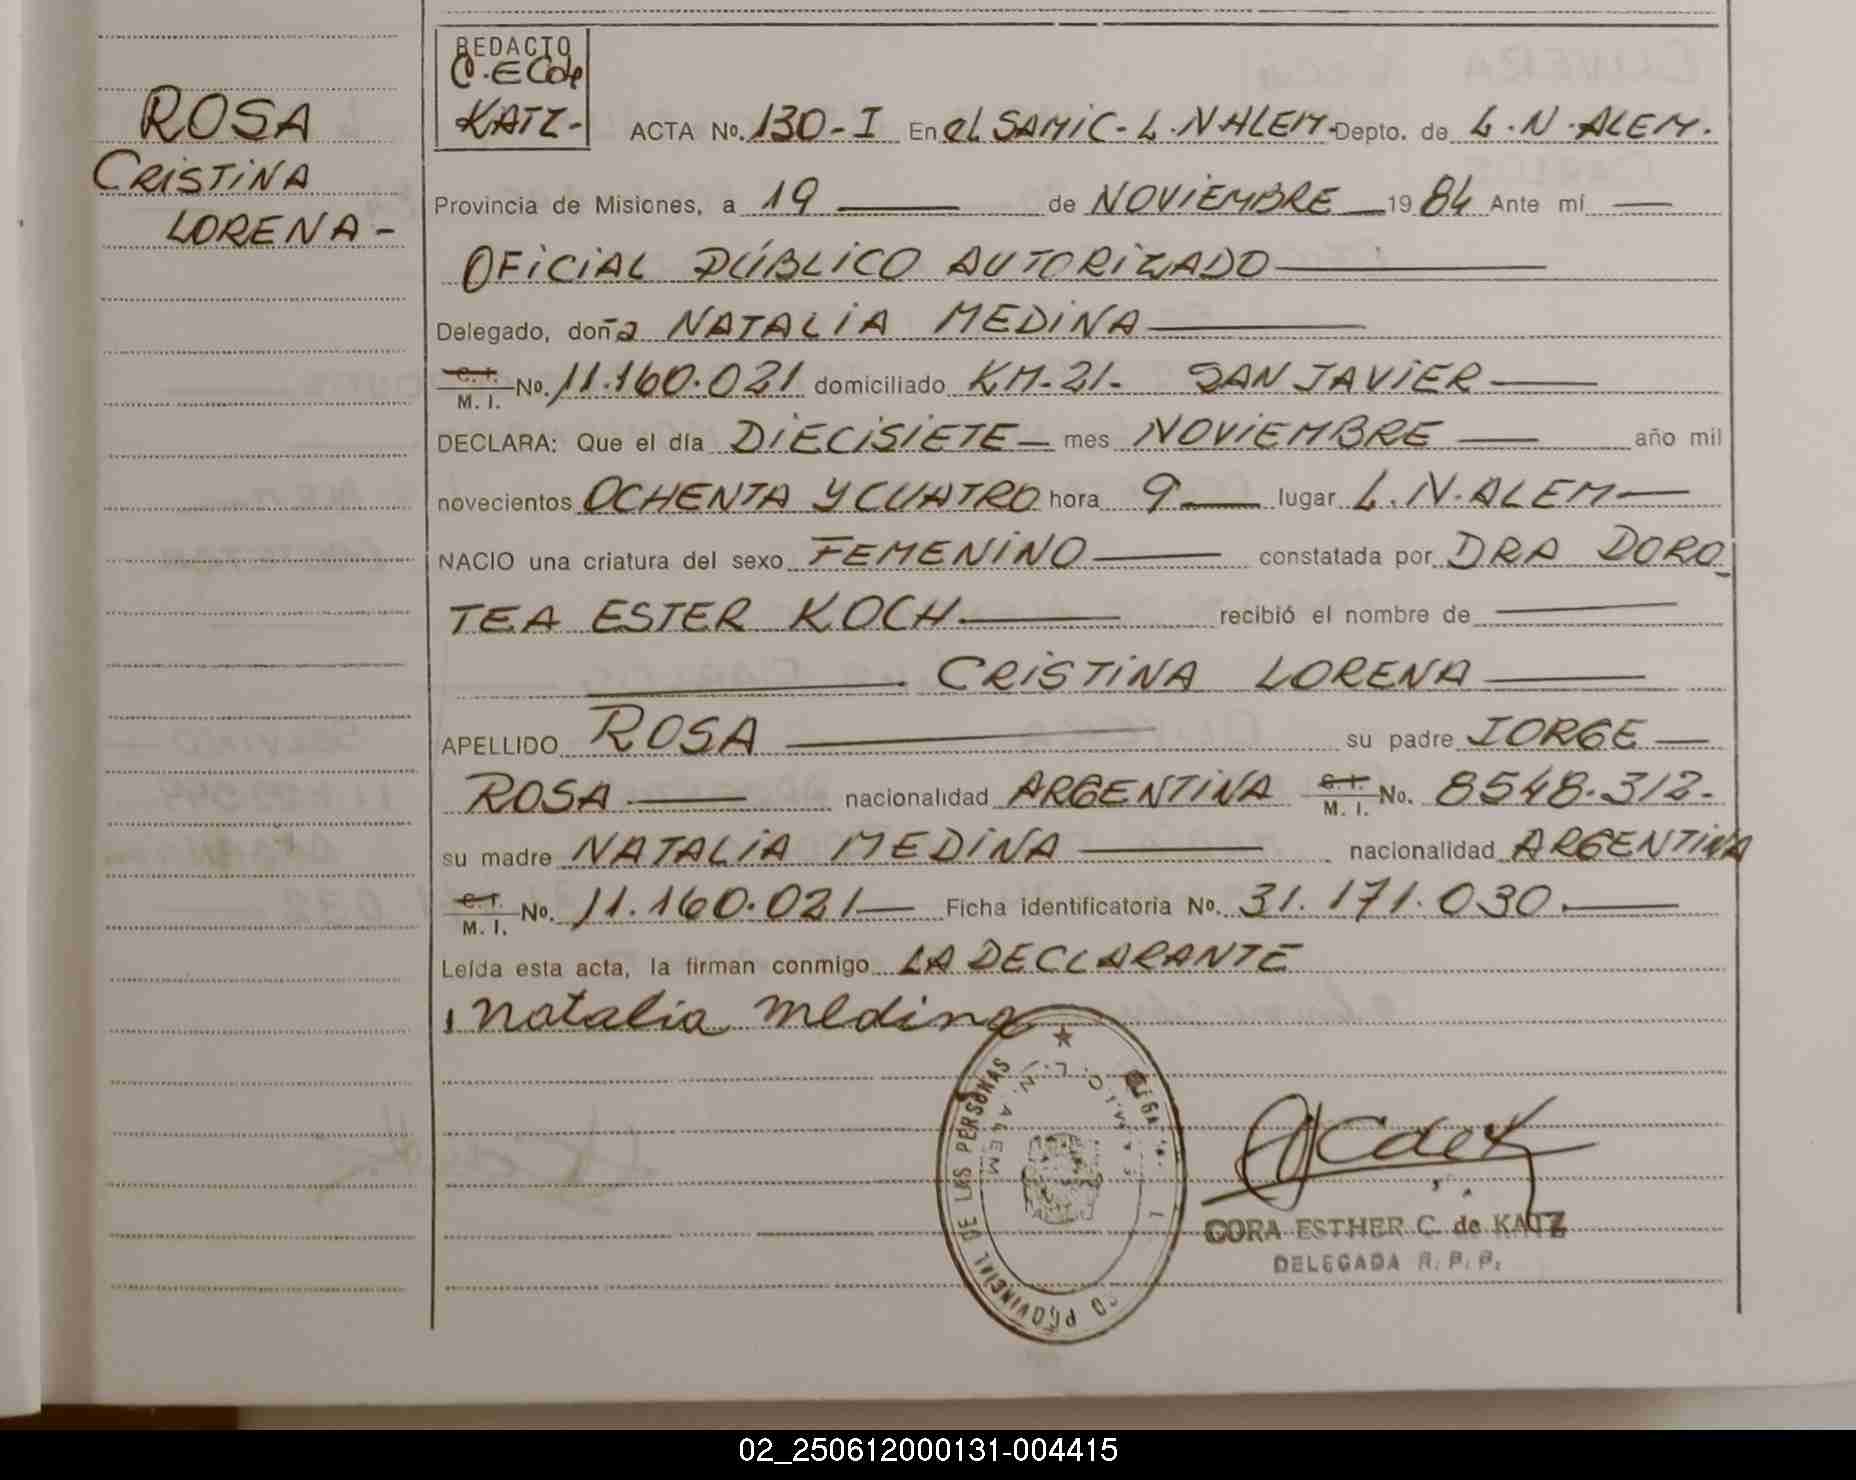 ROSA
CRISTINA
LORENA-
REDACTO
C.E.C de
KATZ-
ACTA No. 130-I En el SAMIC-L.N ALEM- Depto. de L.N.ALEM.
Provincia de Misiones, a 19 de NOVIEMBRE 1984 Ante mí
OFICIAL PÚBLICO AUTORIZADO
Delegado, doña NATALIA MEDINA
C. I. M. I. No. 11.160.021 domiciliado KM-21- SAN JAVIER
DECLARA: Que el día DIECISIETE mes NOVIEMBRE año mil
novecientos OCHENTA Y CUATRO hora 9 lugar L.N.ALEM
NACIO una criatura del sexo FEMENINO constatada por DRA DORO-
TEA ESTER KOCH recibió el nombre de
CRISTINA LORENA
APELLIDO ROSA su padre JORGE
ROSA nacionalidad ARGENTINA C. I. M. I. No. 8548.312-
su madre NATALIA MEDINA nacionalidad ARGENTINA
C. I. M. I. No. 11.160.021 Ficha identificatoria No. 31.171.030.
Leída esta acta, la firman conmigo LA DECLARANTE
Natalia Medina
PROVINCIAL DE LAS PERSONAS
L. N. ALEM
CORA ESTHER C. de KATZ
DELEGADA R. P. P.
02_250612000131-004415